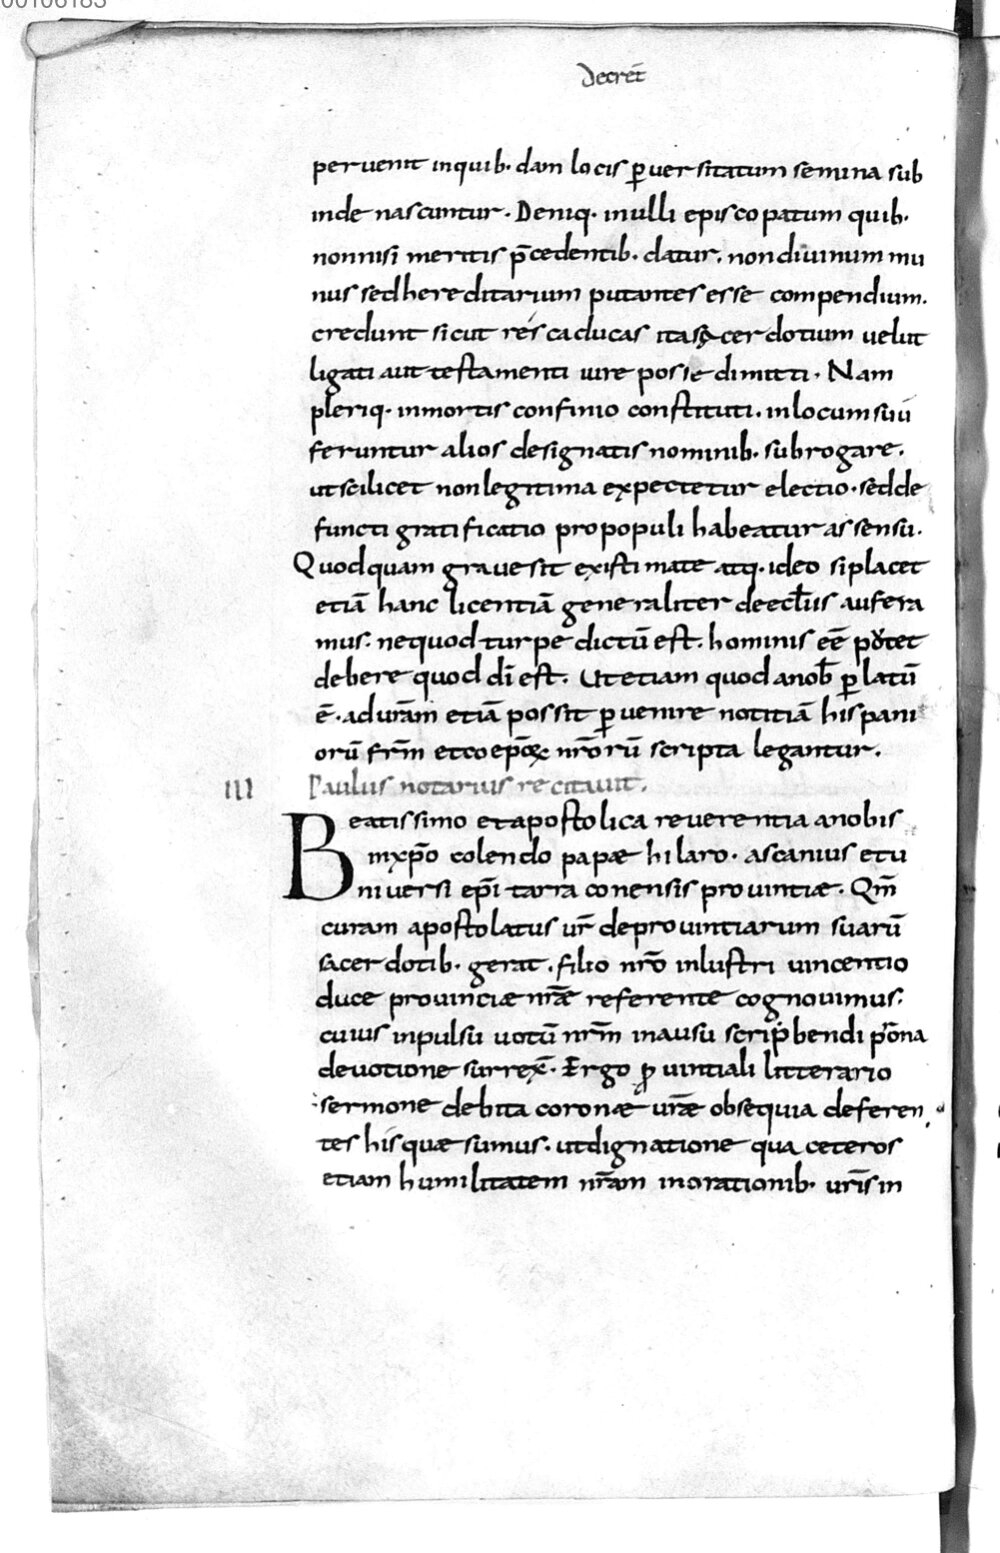 00106183
Decret̄
peruenit inquib· dam locis ꝑuersitatum semina sub
inde nascuntur· Deniq· inulli episcopatum quib·
nonnisi meritis p̄cedentib· datur, nondiuinum mu
nus sedhereditarium putantes esse compendium.
credunt sicut res caducas itasacerdotium uelut
ligati aut testamenti iure posse dimitti· Nam
pleriq· inmortis confinio constituti. inlocum suū
feruntur alios designatis nominib· subrogare.
utscilicet nonlegitima expectetur electio· sedde
functi gratificatio propopuli habeatur assensu.
Quodquam grauesit existimate atq· ideo siplacet
etiā hanc licentiā generaliter deeccl̄iis aufera
mus. nequod turpe dictū est. hominis eē
debere quod dī est. Ut etiam quod anob̄ ꝑlatū
ē· adur̄am etiā possit ꝑuenire notitiā hispani
orū fr̄m etcoep̄oꝝ nr̄orū scripta legantur.
III Paulus notarius recitauit.
Beatissimo etapostolica reuerentia anobis
inxp̄o colendo papæ hilaro· ascanius etu
niuersi ep̄i tarraconensis prouintiæ. Qm̄
curam apostolatus ur̄ deprouintiarum suarū
sacerdotib· gerat. filio nr̄o inlustri uincentio
duce prouinciæ nr̄æ referente cognouimus.
cuius inpulsu uotū nr̄m inausu scribendi
deuotione surrex̄· Ergo ꝓuintiali litterario
sermone debita coronæ ur̄æ obsequia deferen
tes hisquæ sumus. utdignatione qua ceteros
etiam humilitatem nr̄am inorationib· ur̄is in